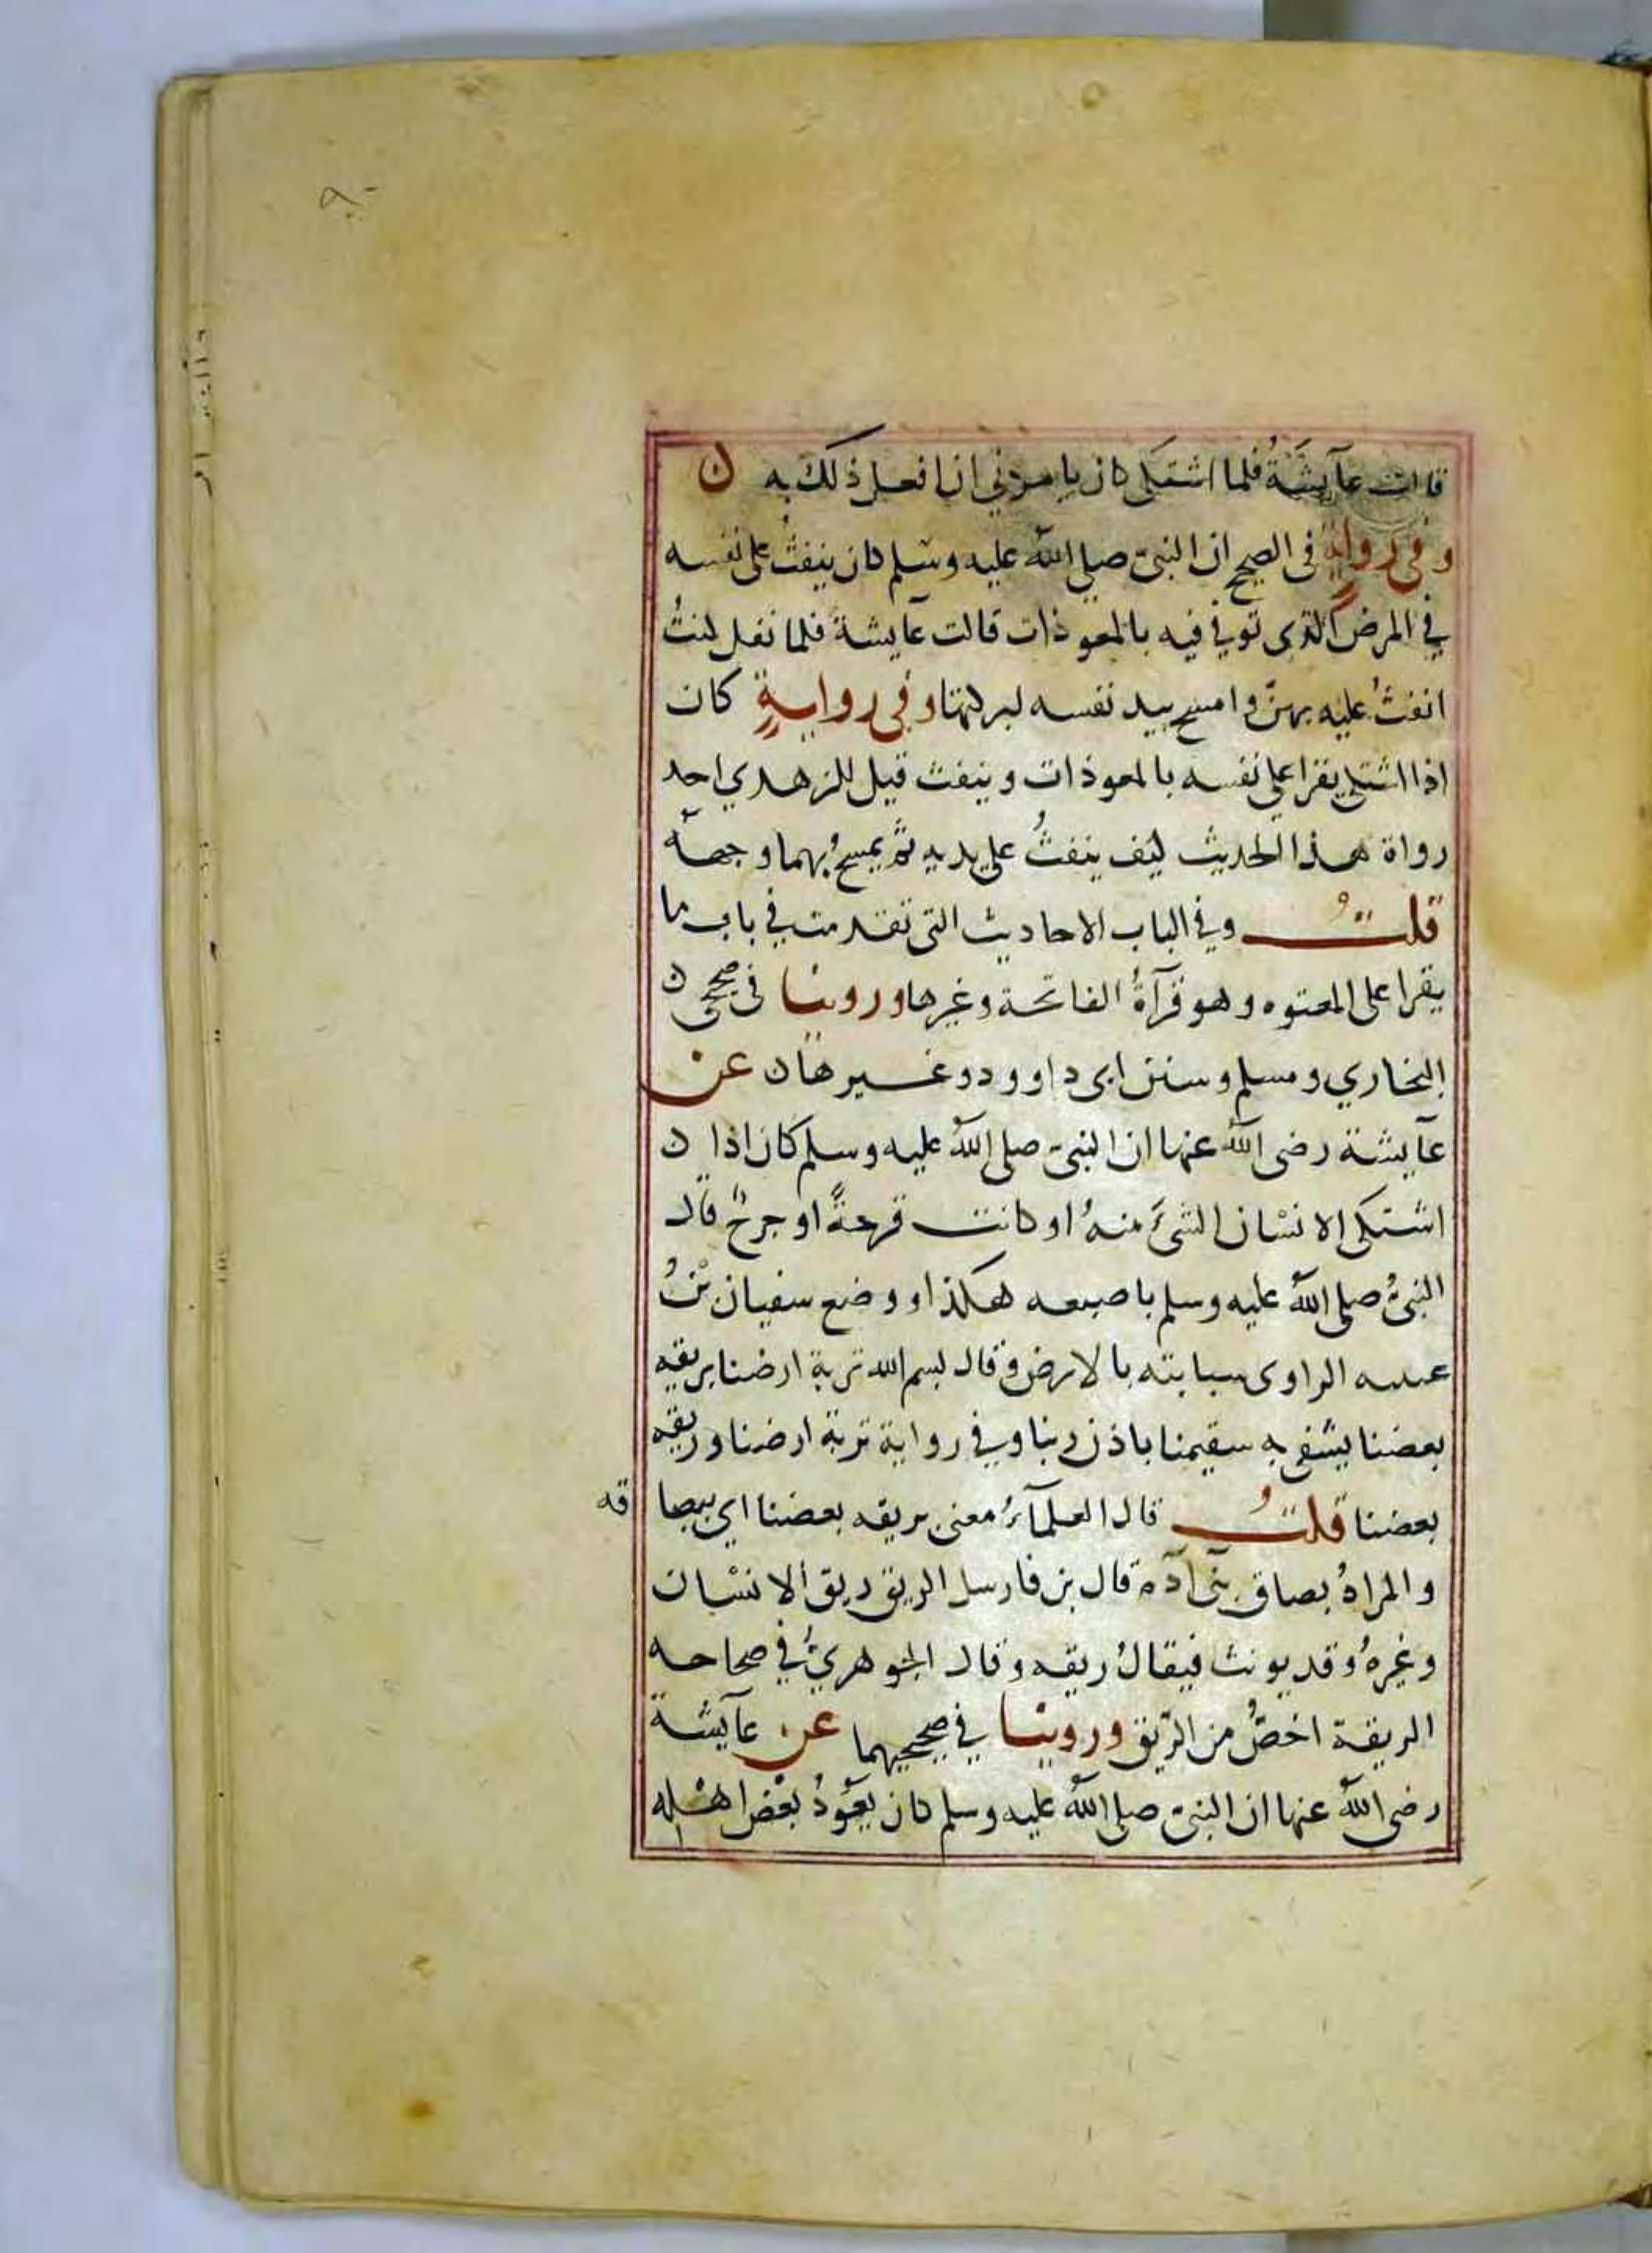 قالت عآيشَةُ فلما اشتكى كان يامرني ان افعل ذلك به ن
وفي رواية في الصحيح ان النبىّ صلى الله عليه وسلم كان ينفثُ على نفسه
في المرض الذى توفي فيه بالمعوذات قالت عآيشةَ فلما ثقل كنتُ
انفثُ عليه بهنّ وامسح بيد نفسه لبركتها وفي روايةٍ كان
اذا اشتكى يقرا على نفسه بالمعوذات وينفث قيل للزهدي احد
رواة هذا الحديث كيف ينفثُ على يديه ثم يمسحُ بهما وجهه
قلتُ وفي الباب الاحاديث التي تقدمت في باب ما
يقرا على المعتوه وهو قرآةُ الفاتحة وغيرها وروينا في صحيحى ن
البخاري ومسلم وسنن ابى داوود وغيرها ن عن
عآيشة رضى الله عنها ان النبىّ صلى الله عليه وسلم كان اذا ن
اشتكى الانسان الشىَٔ منهُ او كانت قرحةً او جرحٌ قال
النبىُّ صلى الله عليه وسلم باصبعه هكذا ووضع سفيان بْنُ
عيينه الراوى سبابته بالارض وقال بسم الله تربة ارضنا بريقه
بعضنا يشفى به سقيمنا باذن ربنا وفي رواية تربة ارضنا وريقه
بعضنا قلتُ قال العلمآءُ معنى بريقه بعضنا اي ببصا قه
والمرادُ بصاق بنى آدم قال بن فارسل الريق ريق الانسان
وغيرهُ وقد يونث فيقالُ ريقه وقال الجوهريُّ في صحاحه
الريقة اخصُّ من الرّيق وروينا في صحيحيهما عن عآيشة
رضى الله عنها ان النبىّ صلى الله عليه وسلم كان يعَوّذُ بعْض اهْله